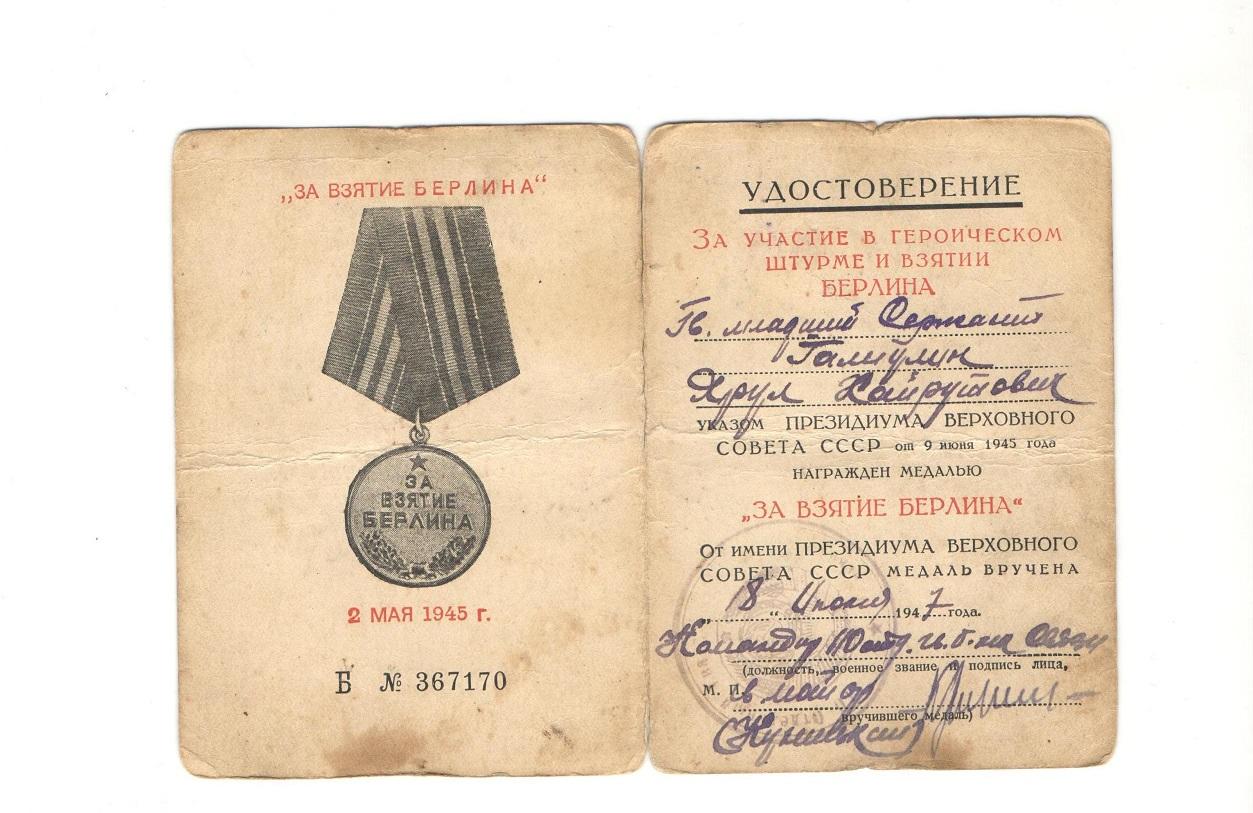 „ЗА ВЗЯТИЕ БЕРЛИНА“
ЗА
ВЗЯТИЕ
БЕРЛИНА
2 МАЯ 1945 г.
Б № 367170
УДОСТОВЕРЕНИЕ
ЗА УЧАСТИЕ В ГЕРОИЧЕСКОМ
ШТУРМЕ И ВЗЯТИИ
БЕРЛИНА
Гв. младший Сержант
Галиулин
Ярул Хайрутович
УКАЗОМ ПРЕЗИДИУМА ВЕРХОВНОГО
СОВЕТА СССР от 9 июня 1945 года
НАГРАЖДЕН МЕДАЛЬЮ
„ЗА ВЗЯТИЕ БЕРЛИНА“
ОТ ИМЕНИ ПРЕЗИДИУМА ВЕРХОВНОГО
СОВЕТА СССР МЕДАЛЬ ВРУЧЕНА
„18“ Июня 1947 года.
Командир 10
(должность, военное звание и подпись лица,
М. П. гв. майор
вручившего медаль)